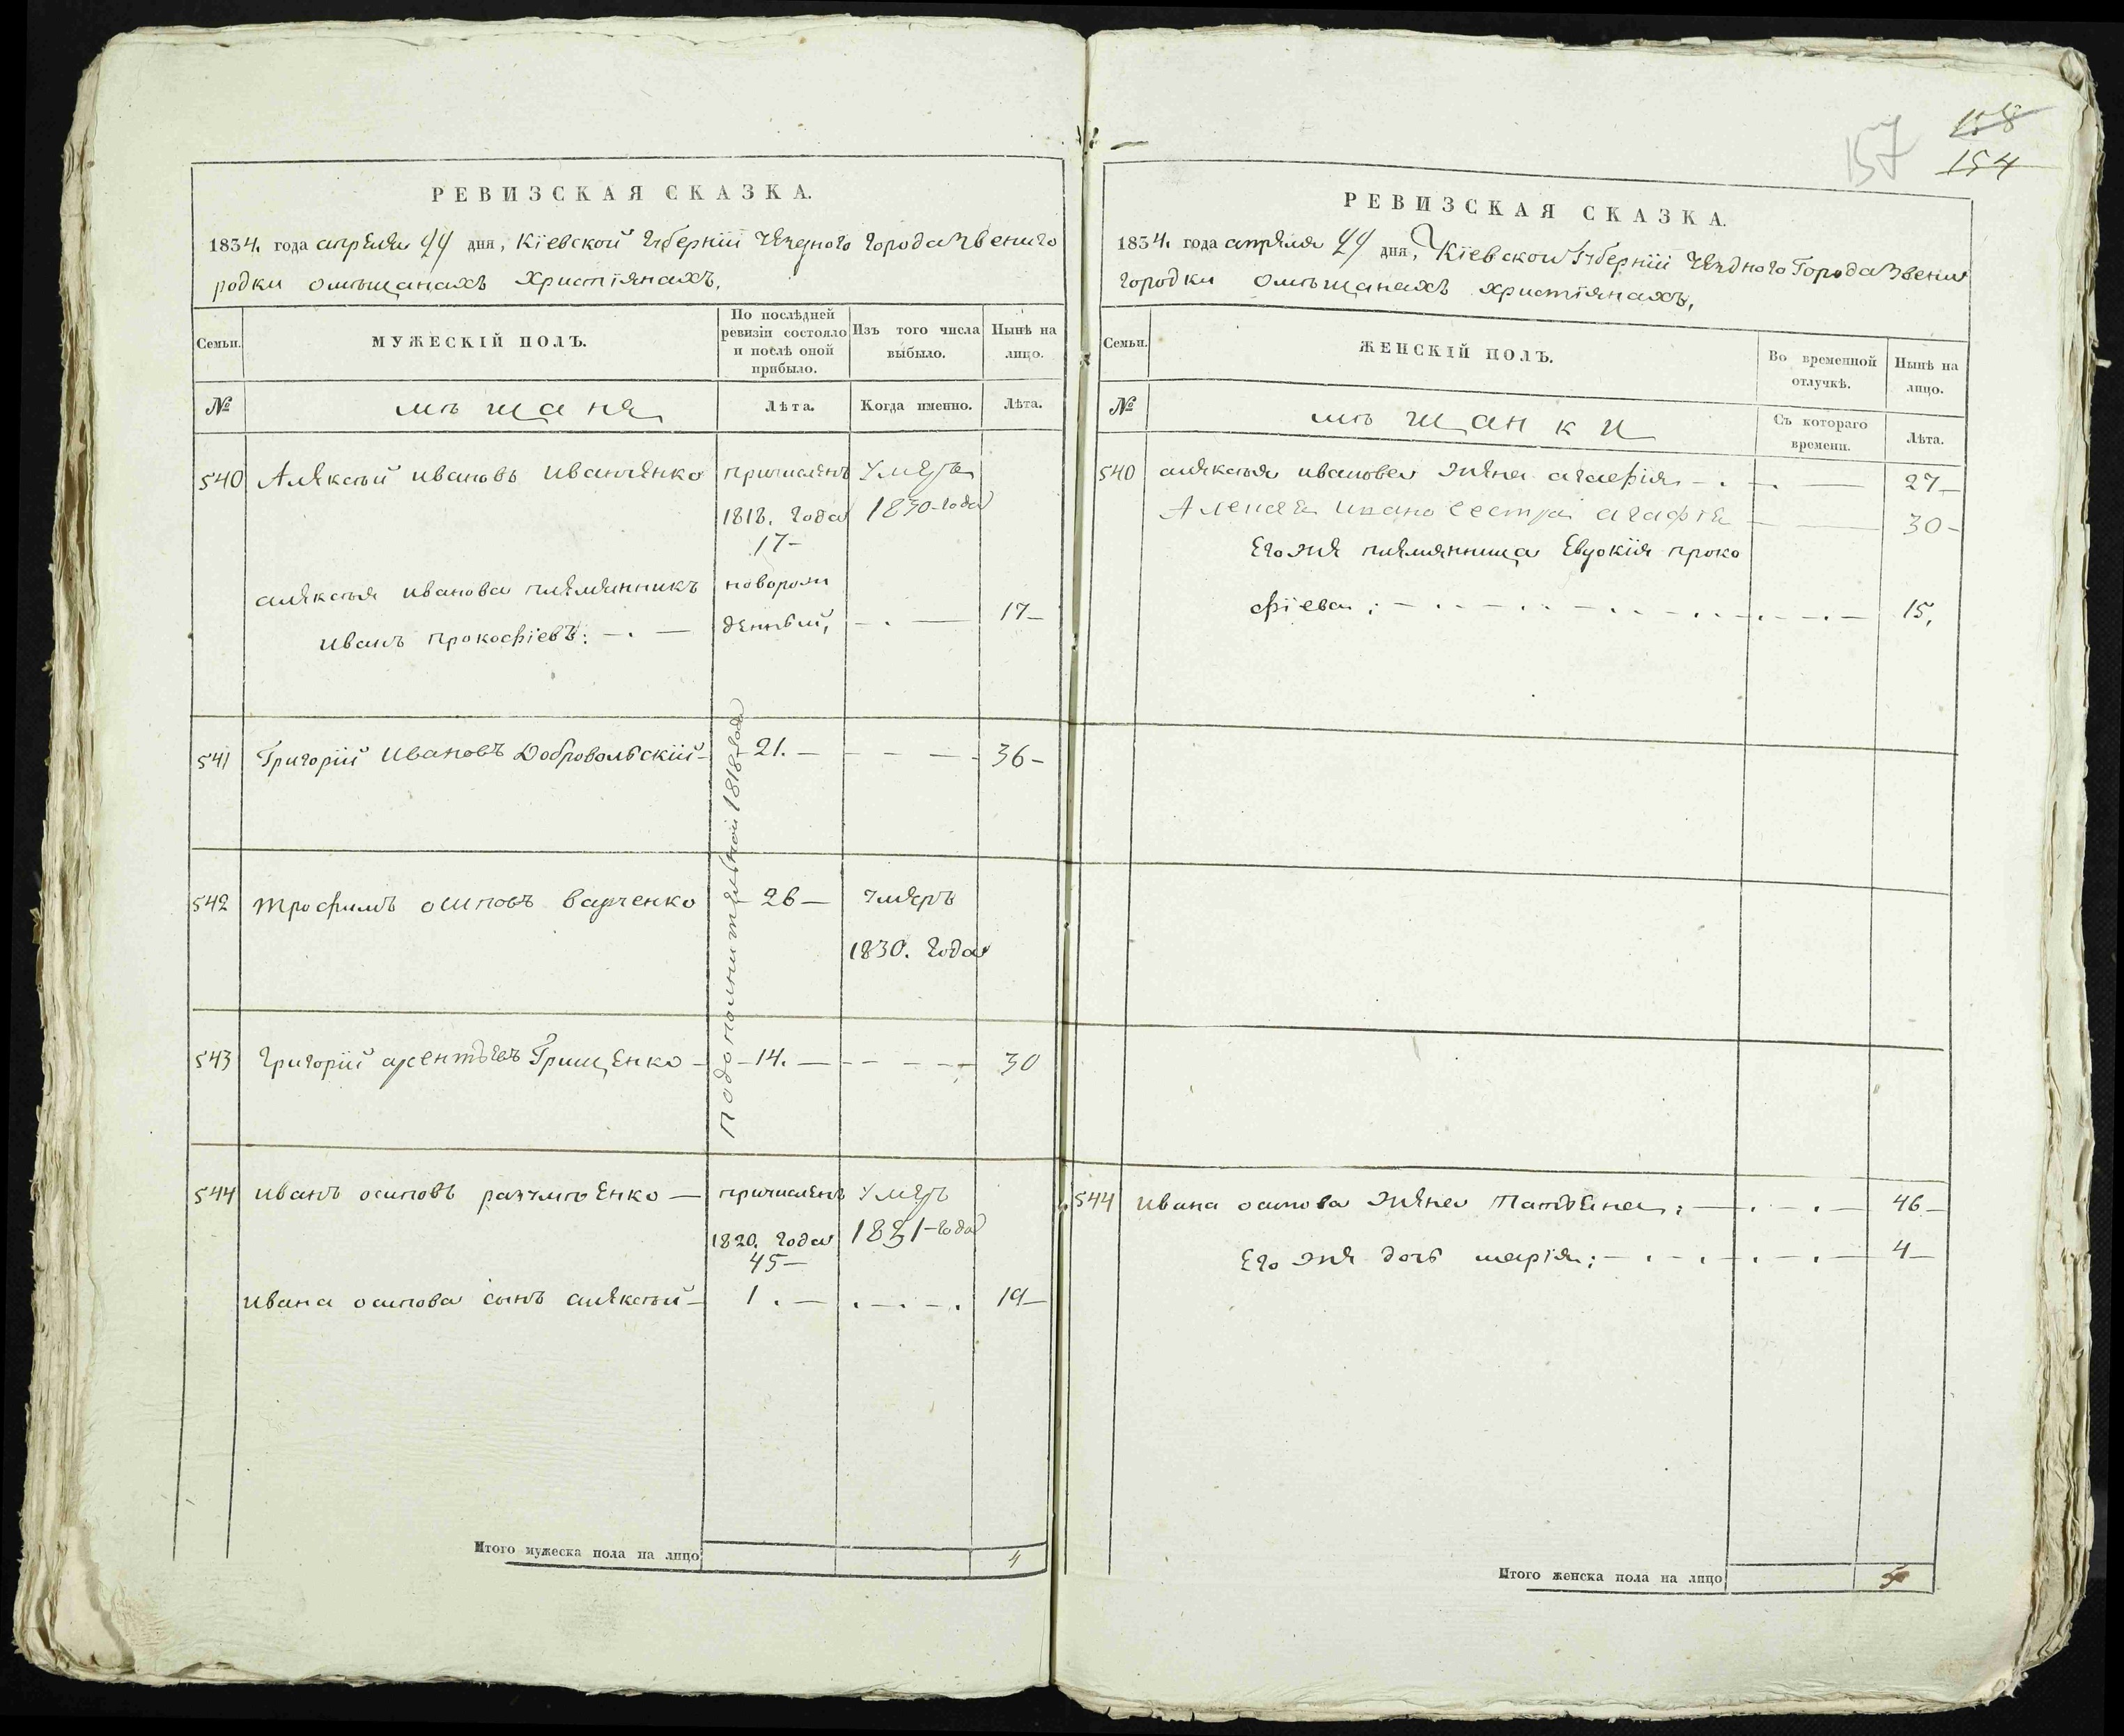 158
157
154
РЕВИЗСКАЯ СКАЗКА.
1834. года апреля дня, Кіевской Губерніи города Звениго
родки омѣщанахъ христіянахъ,
Семьи.
МУЖЕСКІЙ ПОЛЪ.
По послѣдней ревизіи состояло и послѣ оной прибыло.
Изъ того числа выбыло.
Нынѣ на лицо.
№
мѣщаня
Лѣта.
Когда именно.
Лѣта.
540 Алексѣй ивановъ иванченко причисленъ умеръ
1818. года 1830 года
17-
алексѣя иванова племянникъ новорож
иванъ прокофіевъ: денный, 17-
По дополнительной 1818 года
541 Григорій ивановъ Добровольскій 21. 36-
542 трофимъ осиповъ варченко 26 умеръ
1830. года
543 григорій арентьевъ Грищенко 14. 30
544 иванъ осиповъ разумѣенко причисленъ умеръ
1820. года 1831 года
45-
ивана осипова сынъ алексѣй 1. 19
Итого мужеска пола на лицо 4
РЕВИЗСКАЯ СКАЗКА.
1834. года апреля дня, Кіевской Губерніи Города Звени
городки омѣщанахъ христіянахъ,
Семьи.
ЖЕНСКІЙ ПОЛЪ.
Во временной отлучкѣ.
Нынѣ на лицо.
№
мѣщанки
Съ котораго времени.
Лѣта.
540 алексѣя иванова жена агафія 27
сестра агафія 30-
Его же племянница Евдокія проко
фіева: 15,
544 ивана осипова жена татьяна: 46
Его же дочь марія: 4
Итого женска пола на лицо 5